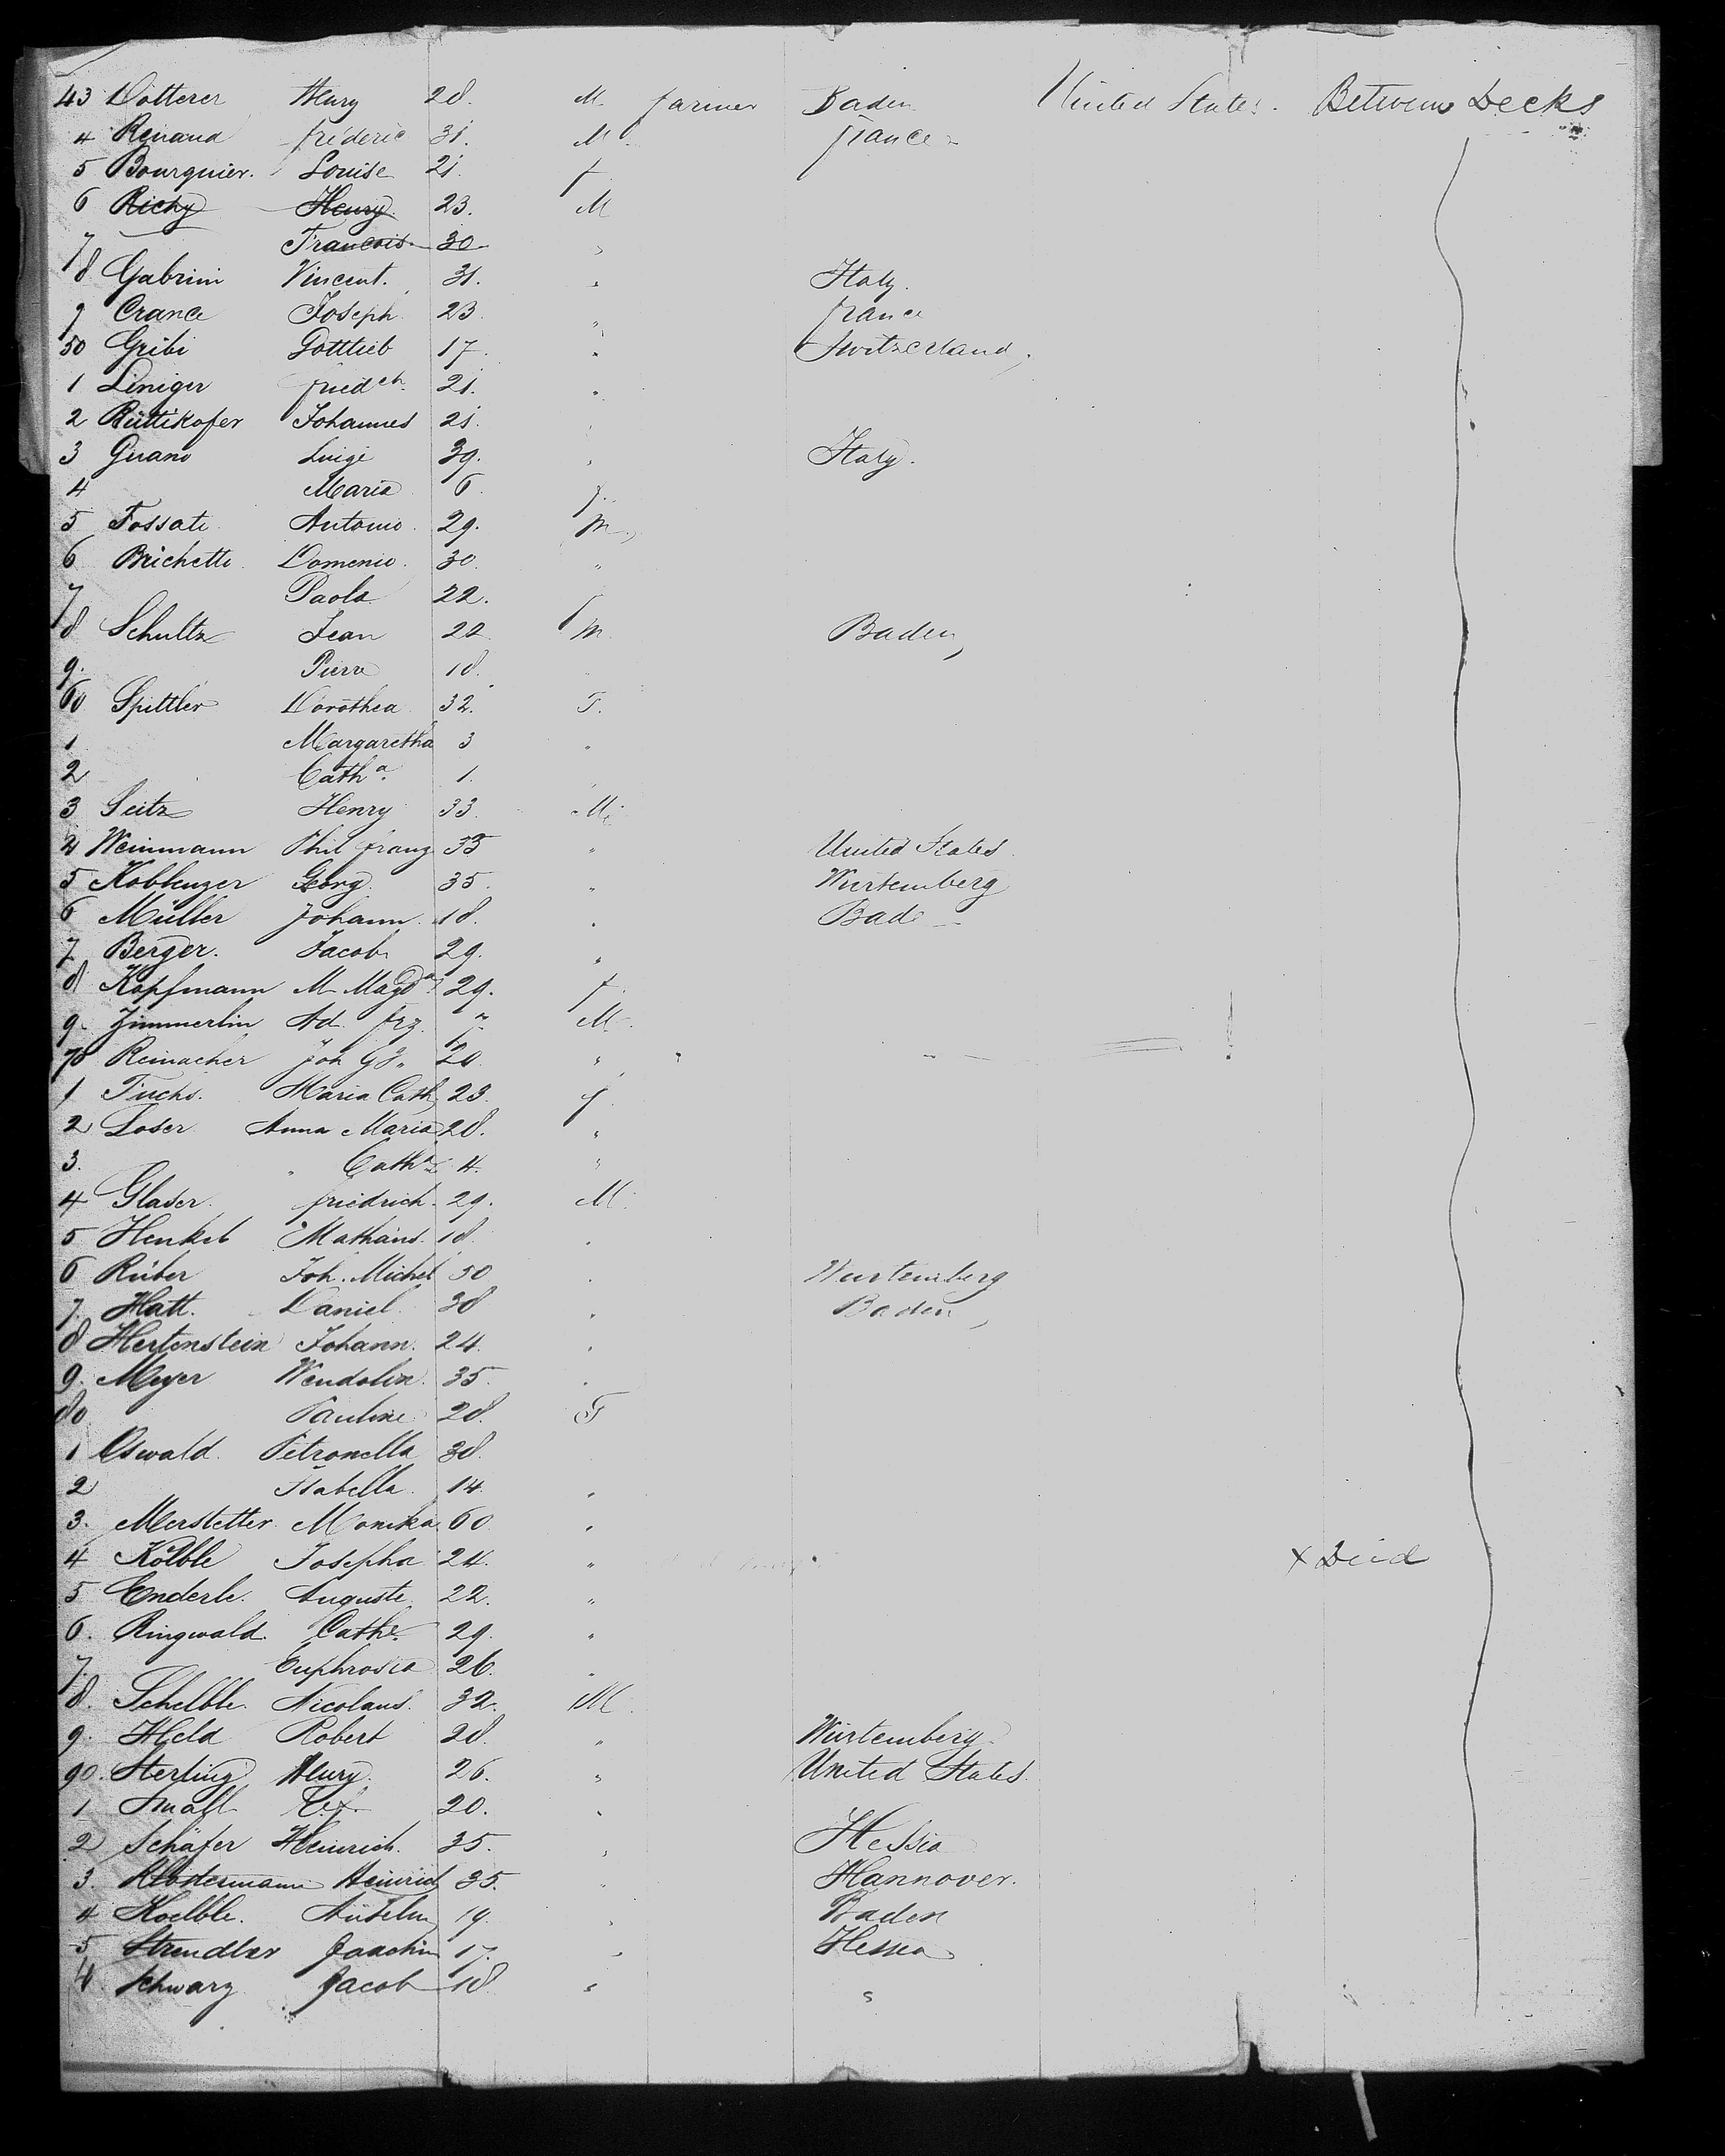 43 Dotterer Henry 28. M. farmer Baden United States. Between Decks
4 Renaud frédéric 31. M. france
5 Bourquier. Louise 21. f.
6 Richy Henry 23. M
7 Francois 30
8 Gabrini Vincent. 31. " Italy.
9 Crance Joseph 23. " france
50 Gribi Gottlieb 17. " Switzerland,
1 Liniger friedch. 21. "
2 Rüttikofer Johannes 21.
3 Luigi 39. Italy.
4 Maria 6. f.
5 Fossati Antonio 29. M.
6 Brichetto Domenic 30. "
7 Paola 22. f
8 Schultz Jean 22 M. Baden,
9. Pierre 18.
60 Spittler Dorothea 32. F.
1 Margaretha 3 "
2 Catha. 1.
3 Seitz Henry 33. M.
4 Weinmann Phil franz 35 " United States.
5 Koblenzer Georg. 35. " Wurtemberg
6 Müller Johann. 18. " Bade
7 Berger. Jacob 29. "
8 Kopfmann M Magda. 29. f.
9. Zimmerlin Ad. frz. M.
70 Reinacher Joh 20. "
1 Fuchs. Maria Cath 23. f.
2 Loser Anna Maria 28. "
3. " Catha 4. "
4 Glaser. friedrich. 29. M.
5 Henkel Mathaus. 18.
6 Rüber Joh. Michel 50 Wurtemberg
7. Hatt. Daniel 38 Baden,
8 Hertenstein Johann. 24.
9. Meyer Wendolin. 35.
80 Pauline 28. F
1 Oswald. Petronella 38.
2 Isabella. 14. "
3. Merstetter Monika 60. "
4 Kölble Josepha 24. " x Died
5 Enderle. Auguste. 22. "
6. Ringwald. Cathe. 29. "
7. Euphrosia 26. "
8. Schelble. Nicolaus. 32. M.
9. Held Robert 28. " Würtemberg.
90. Sterling Henry. 26. " United States.
1 Small 20. "
2 Schäfer Heinrich. 35. " Hessia
3. Klostermann Heinrich 35. " Hannover.
4 Koelble. 19. " Baden
5 Joachim 17. " Hessia
Schwarz Jacob 18 " "